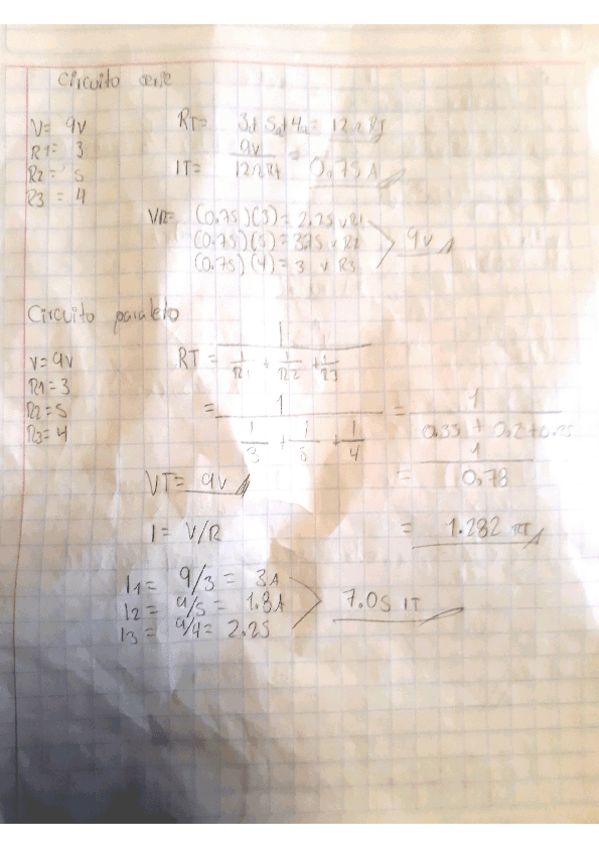 Circuito serie
V= 9V
R1= 3
R2= 5
R3= 4
RT= 3Ω 5Ω+4Ω= 12Ω RT
IT= 9V/12Ω RT = 0,75A
VR= (0.75)(3)= 2.25 VR1
(0.75)(5)=3.75 V R2
(0.75)(4)=3 V R3
9V
Circuito paralelo
V=9V
R1=3
R2=5
R3=4
RT = 1/(1/R1 + 1/R2 + 1/R3)
= 1/(1/3 + 1/5 + 1/4) = 1/(0.33 + 0.2+0.25)
= 1/0,78
VT= 9V
I= V/R
= 1.282 RT
I1= 9/3 = 3A
I2= 9/5 = 1.8A
I3= 9/4= 2.25
7.05 IT